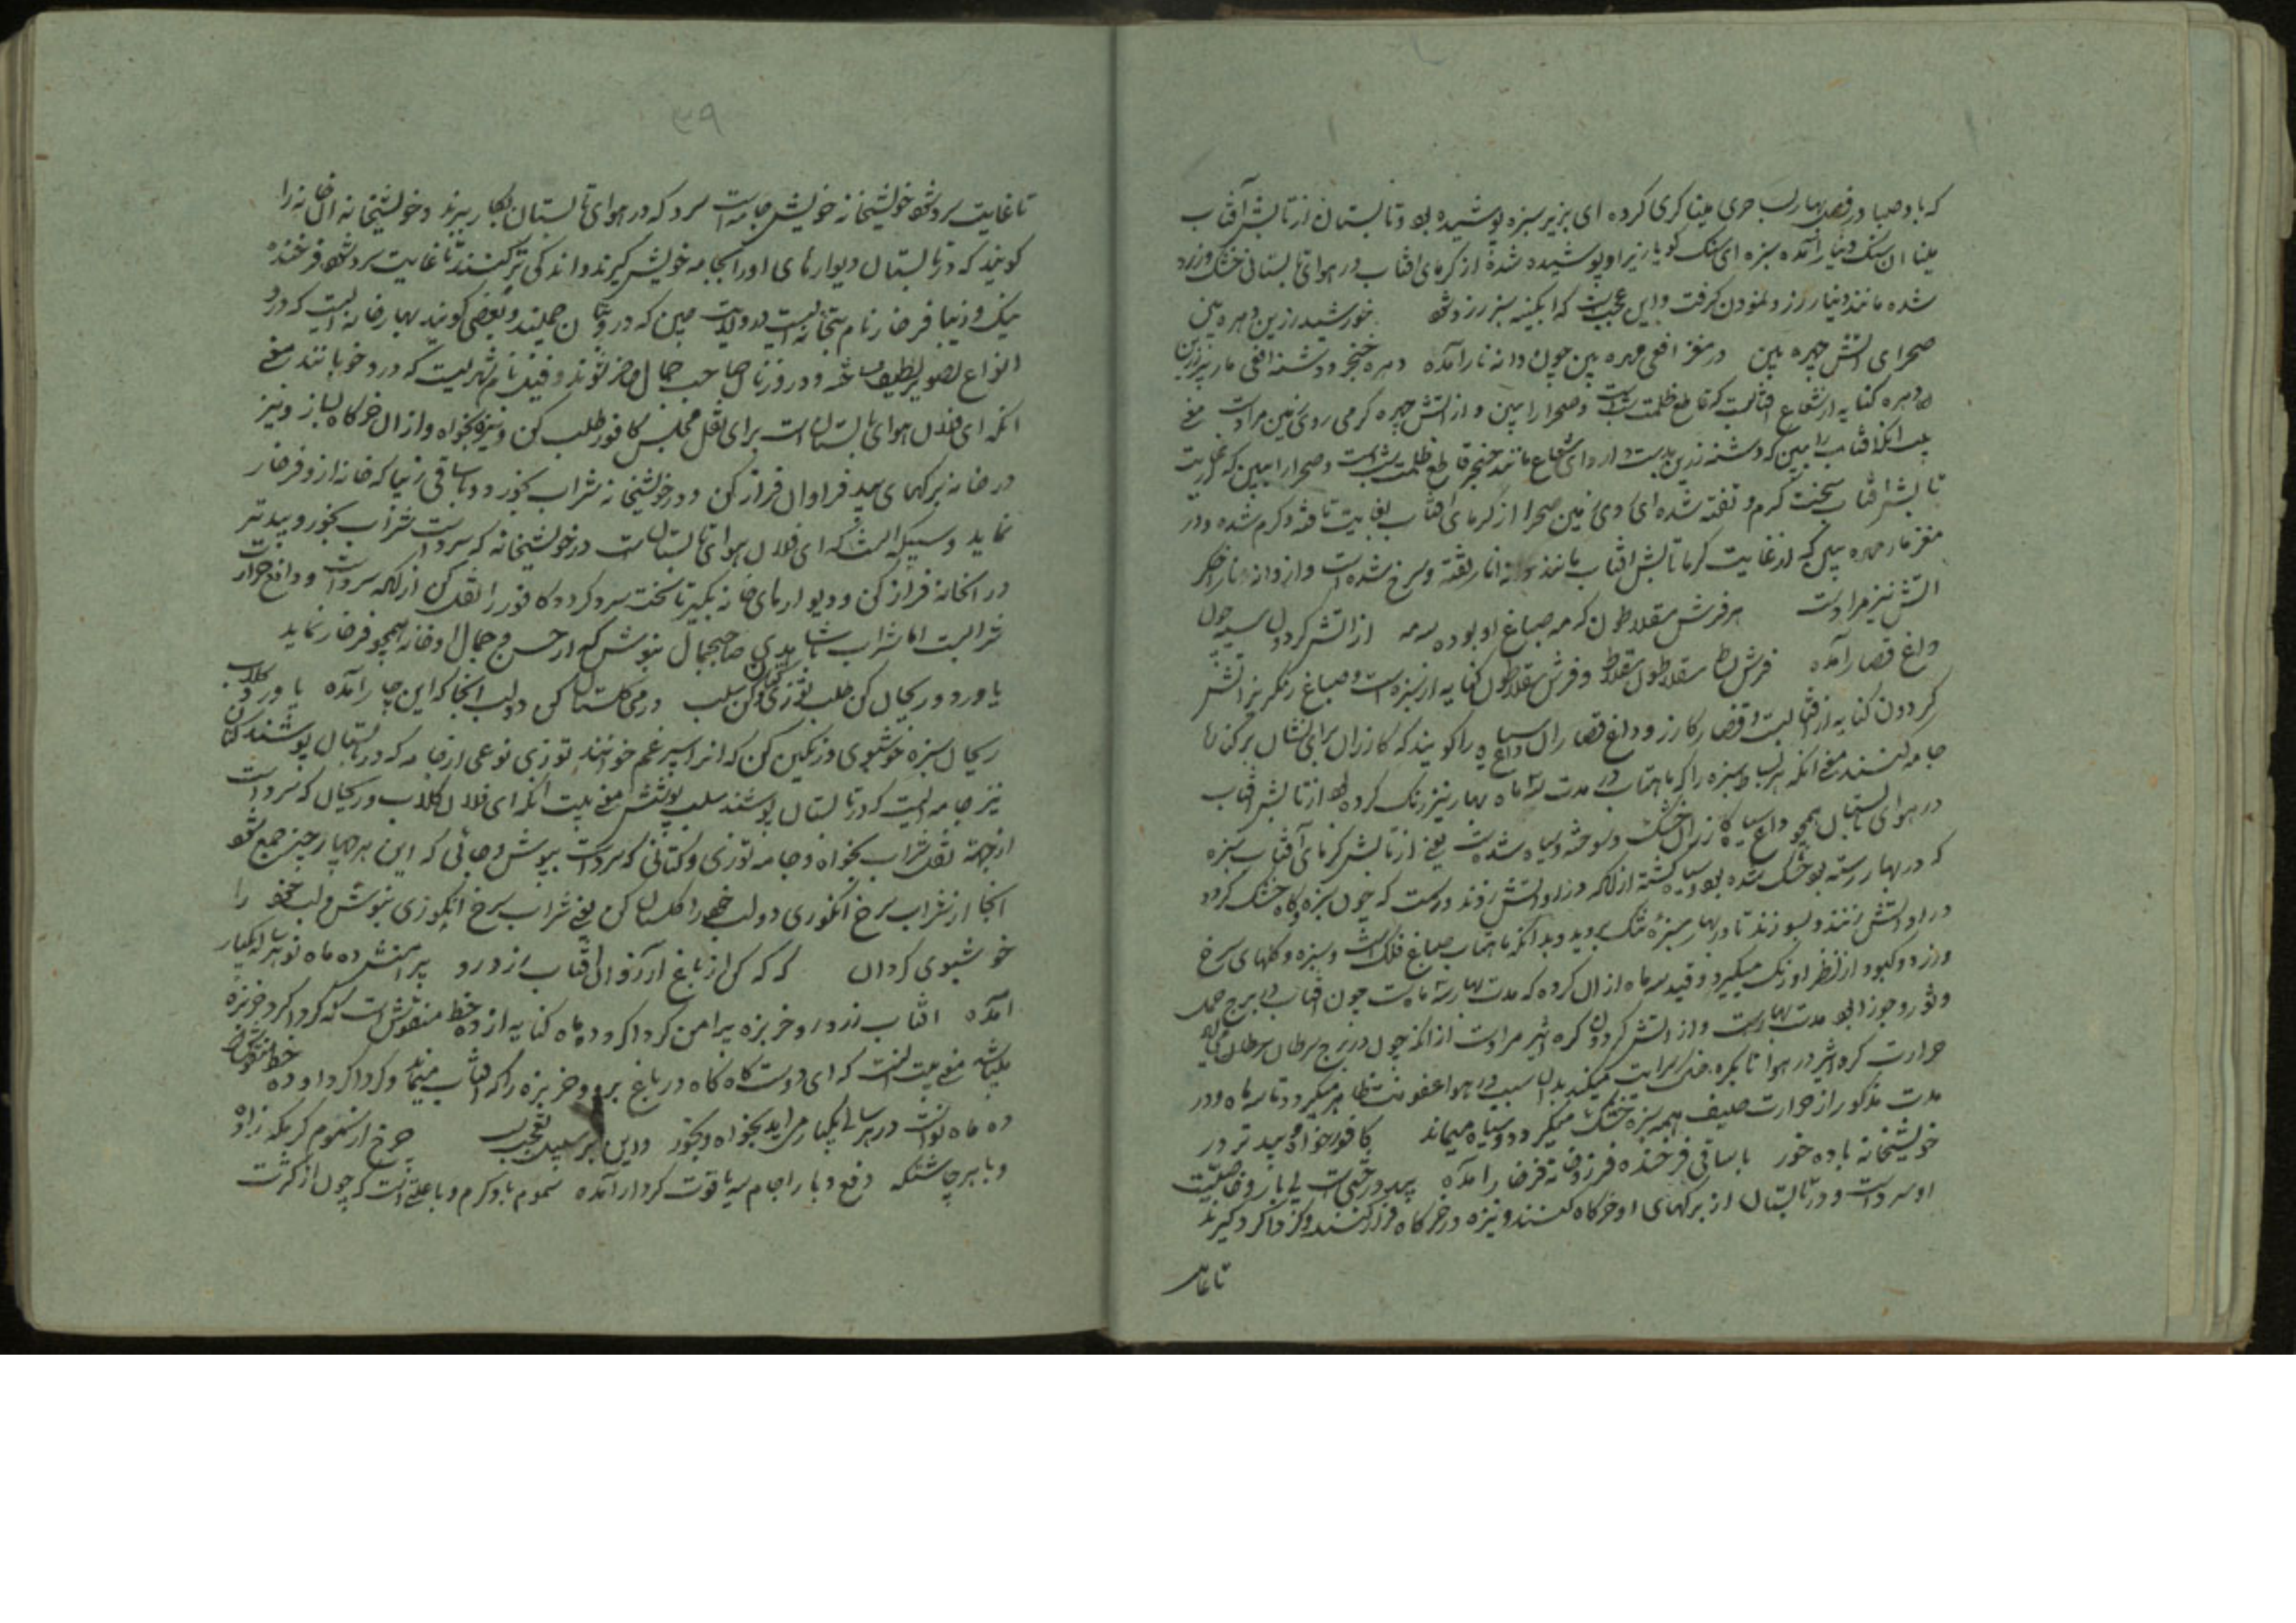 که باد صبا در فصل بهار بسحری مینا کری کرده ای بزیر سبزه پوشیده بود و تابستان از تابش آفتاب
مینا ان سنک دینار آمده سبزه ای سنک کویا زیر او پوشیده شده از کرمای افتاب در هوای تابستانی خشک و زرد
شده مانند دینار زرد نمودن کرفت و این عجب است که ابکینه سبز زرد شود خورشید زرین دهره بین
صحرای اتش چهره بین در مغز افعی مهره بین چون دانه نار آمده دهره خنجر و دشنه افعی مار پیر زرین
دهره کنایه از شعاع افتابست که قاطع ظلمت شب است و صحرا را بین و از اتش چهره کرمی روی زمین مراد است یعنی
بیا انکه افتاب را ببین که دشنه زرین بدست دارد ای شعاع مانند خنجر قاطع ظلمت شب است و صحرا را ببین که
تابش افتاب سخت کرم و تفته شده ای روی زمین صحرا از کرمای افتاب بغایت تافته و کرم شده و در
مغز مار مهره بین که از غایت کرما تابش افتاب مانند دانه انار تفته و سرخ شده است و از دانه نار اخکر
اتش نیز مراد است هر فرش سقلاطون که مه صباغ او بوده سه مه از اتش کردون سیه چون
داغ قصار آمده فرش بساط سقلاطون سقلاط و فرش سقلاطون کنایه از سبزه است و صباغ رنکریز اتش
کردون کنایه از افتابست و قصار کازر و داغ قصار ان داغ سیاه را کویند که کازران برای نشان بر کناره
جامه کنند یعنی انکه هر بساط سبزه را که ماهتاب در مدت سه ماه بهار نیز رنک کرده بود از تابش افتاب
در هوای تابستان همچو داغ سیاه کازران خشک و سوخته و سیاه شده است یعنی از تابش کرمای آفتاب سبزه
که در بهار رسته بود خشک شده بود و سیاه کشته از انکه در او اتش زنند و رسمست که چون سبزه و کاه خشک کردد
در او اتش زنند و بسوزند تا در بهار سبزه خنک بروید و بدانکه ماهتاب صباغ فلک است و سبزه و کلهای سرخ
و زرد و کبود از نظر او رنک میکیرد و قید سه ماه از ان کرده که مدت بهار سه ماهست چون افتاب در برج حمل
و ثور و جوزا بود مدت بهار است و از اتش کردون کره اثیر مراد است از انکه چون در برج سرطان
حرارت کره اثیر در هوا تا بکره خاک سرایت میکند بدان سبب در هوا عفونت ظاهر میکردد تا سه ماه و در
مدت مذکور از حرارت صیف همه سبزه خشک میکردد و سیاه میماند کافور خواه و بید تر در
خویشخانه باده خور با ساقی فرخنده فر زو خانه فرخار آمده بید درختی است بی بار و خاصیت
او سرد است و در تابستان از برکهای او خرکاه کنند و نیزه در خرکاه فراز کنند و کز ما کرد کیرند
تا غایت
۳۹
تا غایت سرد شود خویشخانه خویش جامه است سرد که در هوای تابستان بکار برند و خویشخانه ان خانه را
کویند که در تابستان دیوارهای او را بجامه خویش کیرند و اندکی تر کنند تا غایت سرد شود فرخنده
نیک و زیبا فرخار نام بتخانه ایست در ولایت چین که در و بتان جمیلند و بعضی کویند بهار خانه ایست که درو
انواع تصویر لطیف ساخته و در و زنان صاحب جمال حاضر شوند و قیل نام شهریست که درو خوبانند یعنی
انکه ای فلان هوای تابستان است برای نقل مجلس کافور طلب کن و بید بخواه و از ان خرکاه بساز و نیز
در خانه برکهای بید فراوان فراز کن و در خویشخانه شراب بخور و با ساقی زیبا که خانه از و فرخار
نماید و سبیکه است که ای فلان هوای تابستان است در خویشخانه که سرد است شراب بخور و بید تر
در انخانه فراز کن و دیوارهای خانه بکیر تا سخت سرد کردد و کافور را نقل کن از انکه سرد است و دافع حرارت
شرابست اما شراب با شاهدی صاحبجمال بنوش که از حسن و جمال او خانه همچو فرخار نماید
با ورد و ریحان کن طلب توزی و کتان کن سلب در می کلستان کن دو لب انجا که این چار آمده با ورد کلاب
ریحان سبزه خوشبوی و رنکین کن که انرا اسپرغم خوانند توزی نوعی از جامه که در تابستان پوشند کتان
نیز جامه ایست که در تابستان پوشند سلب پوشش معنی بیت انکه ای فلان کلاب و ریحان که سرد است
از جهة نقل شراب بخواه و جامه توزی و کتانی که سرد است بپوش و جائی که این هر چهار چیز جمع شود
انجا از شراب سرخ انکوری دو لب خود را کلستان کن یعنی شراب سرخ انکوری بنوش و لب خود را
خوشبوی کردان که که کن از باغ آرزو ان افتاب زرد رو پیرامنش ده ماه نو هر سال یکبار
آمده افتاب زرد رو خربزه پیرامن کرداکرد ده ماه کنایه از ده خط منقوش است که کرداکرد خربزه
میباشد معنی بیت انست که ای دوست کاه کاه در باغ برو و خربزه را که افتاب مینماید و کرداکرد او ده خط منقوش
ده ماه نو است در هر سال یکبار می اید بخواه و بخور و این بر سبیل تعجب است چرخ از سموم کرمکه زاده
وبا هر چاشتکه دفع وبا را جام یه یاقوت کردار آمده سموم باد کرم وبا علتی است که چون از کثرت